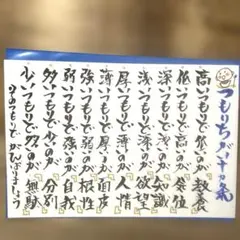 つもりちがい十ヶ条
高いつもりで低いのが 教養
低いつもりで高いのが 気位
深いつもりで浅いのが 知識
浅いつもりで深いのが 欲望
厚いつもりで薄いのが 人情
薄いつもりで厚いのが 面皮
強いつもりで弱いのが 根性
弱いつもりで強いのが 自我
多いつもりで少いのが 分別
少いつもりで多いのが 無駄
そのつもりで がんばりましょう